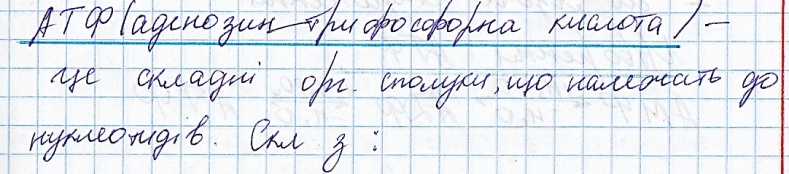 АТФ (аденозин-трифосфорна кислота) –
це складні орг. сполуки, що належать до
нуклеотидів. Скл з :